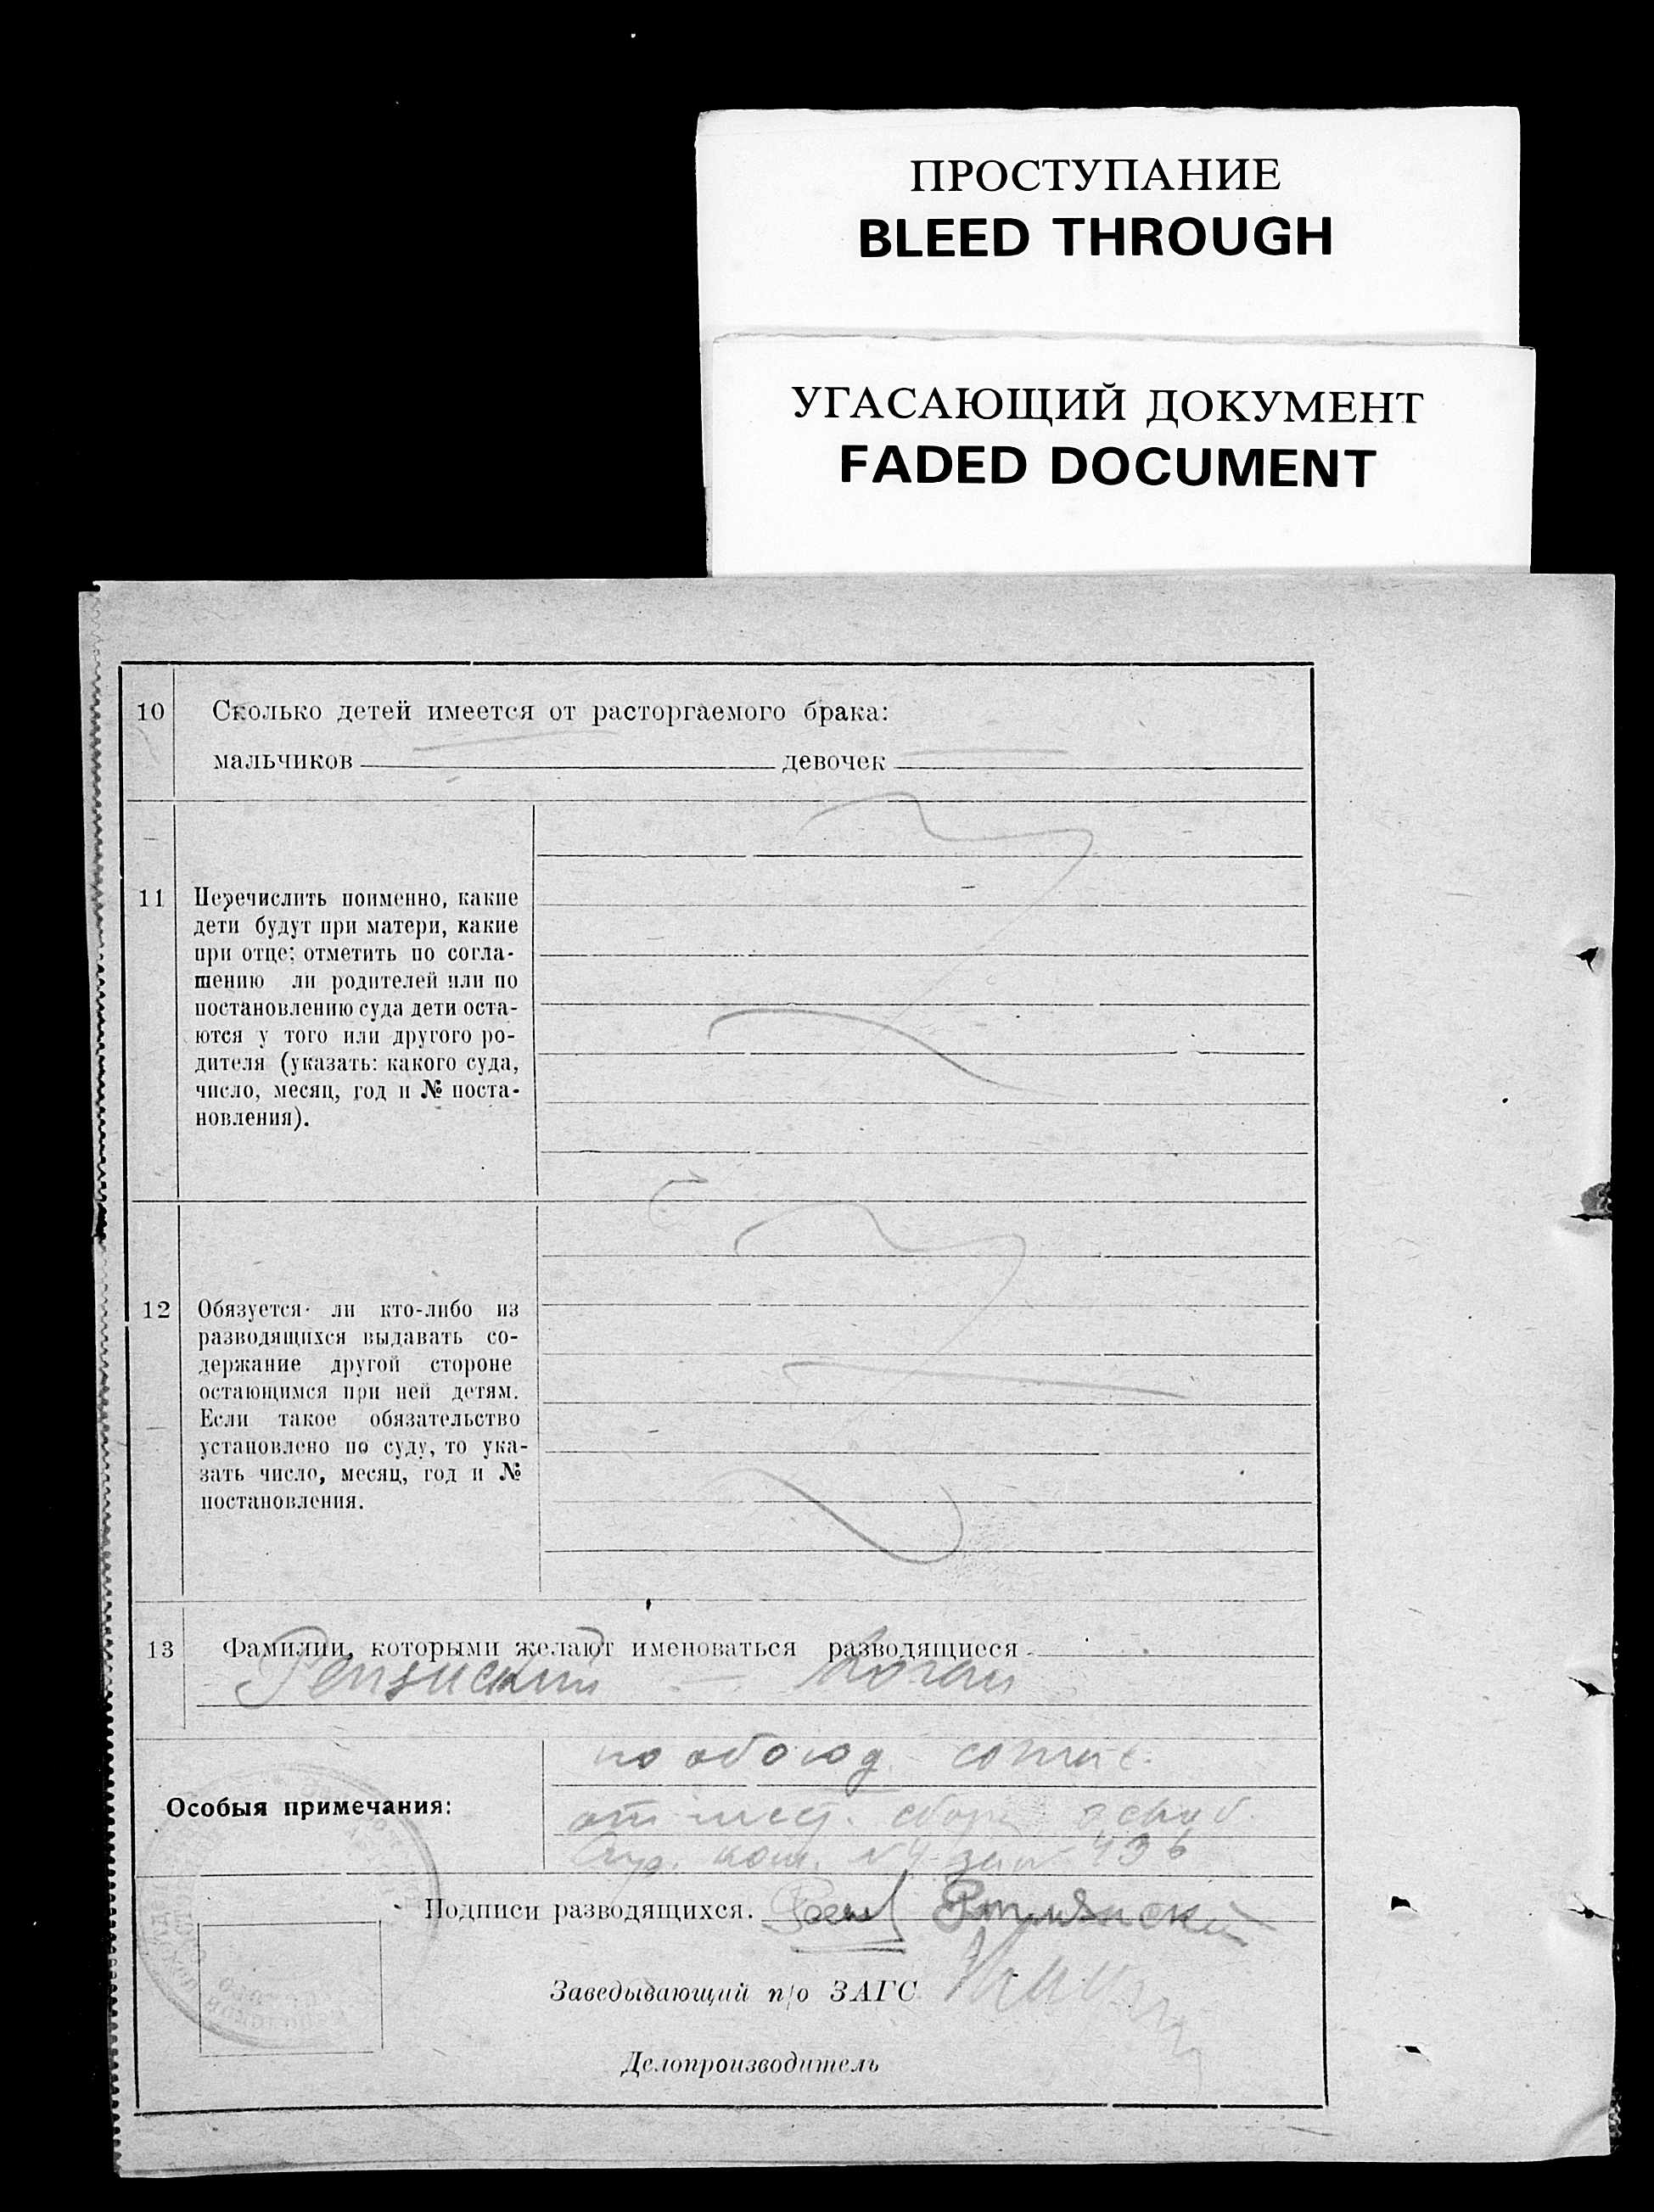 ПРОСТУПАНИЕ
BLEED THROUGH
УГАСАЮЩИЙ ДОКУМЕНТ
FADED DOCUMENT
10 Сколько детей имеется от расторгаемого брака:
мальчиков девочек
11 Перечислить поименно, какие
дети будут при матери, какие
при отце; отметить по согла-
шению ли родителей или по
постановлению суда дети оста-
ются у того или другого ро-
дителя (указать: какого суда,
число, месяц, год и № поста-
новления).
12 Обязуется ли кто-либо из
разводящихся выдавать со-
держание другой стороне
остающимся при ней детям.
Если такое обязательство
установлено по суду, то ука-
зать число, месяц, год и №
постановления.
13 Фамилии, которыми желают именоваться разводящиеся
Коган
по обоюд. соглас.
Особыя примечания:
от мест. сбора освоб.
Подписи разводящихся.
Заведывающий п/о ЗАГС
Делопроизводитель